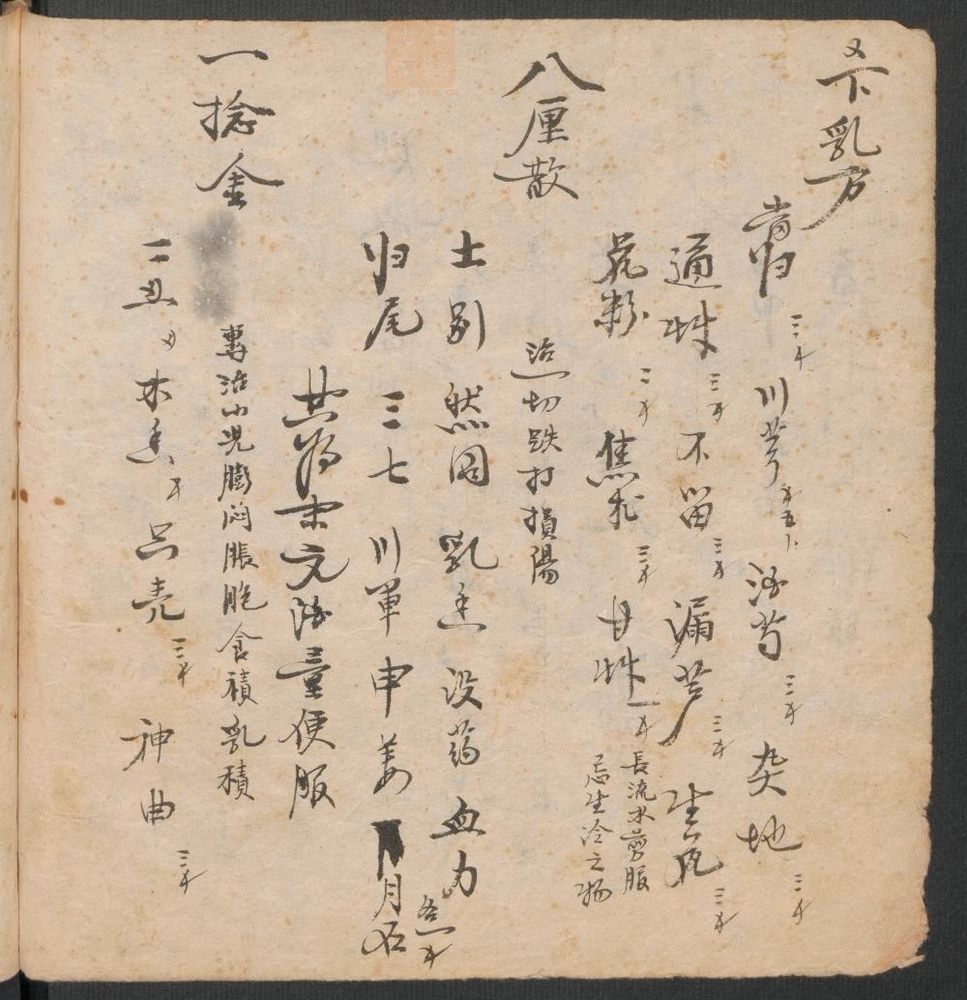 又下乳方
当归 三才 川芎 才五卜 酒芍 三才 大地 三才
通草 三才 不留 三才 漏芦 三才 生芪 三才
花粉 二才 焦术 三才 甘草 一才 長流水煎服
忌生冷之物
八厘散
治一切跌打損陽
土别 然同 乳香 没药 血力 各一才
归尾 三七 川軍 申姜 月石
共为末 元酒童便服
一捻金
專治小児膨闷脹胞食積乳積
二丑 木香 只壳 三才 神曲 三才